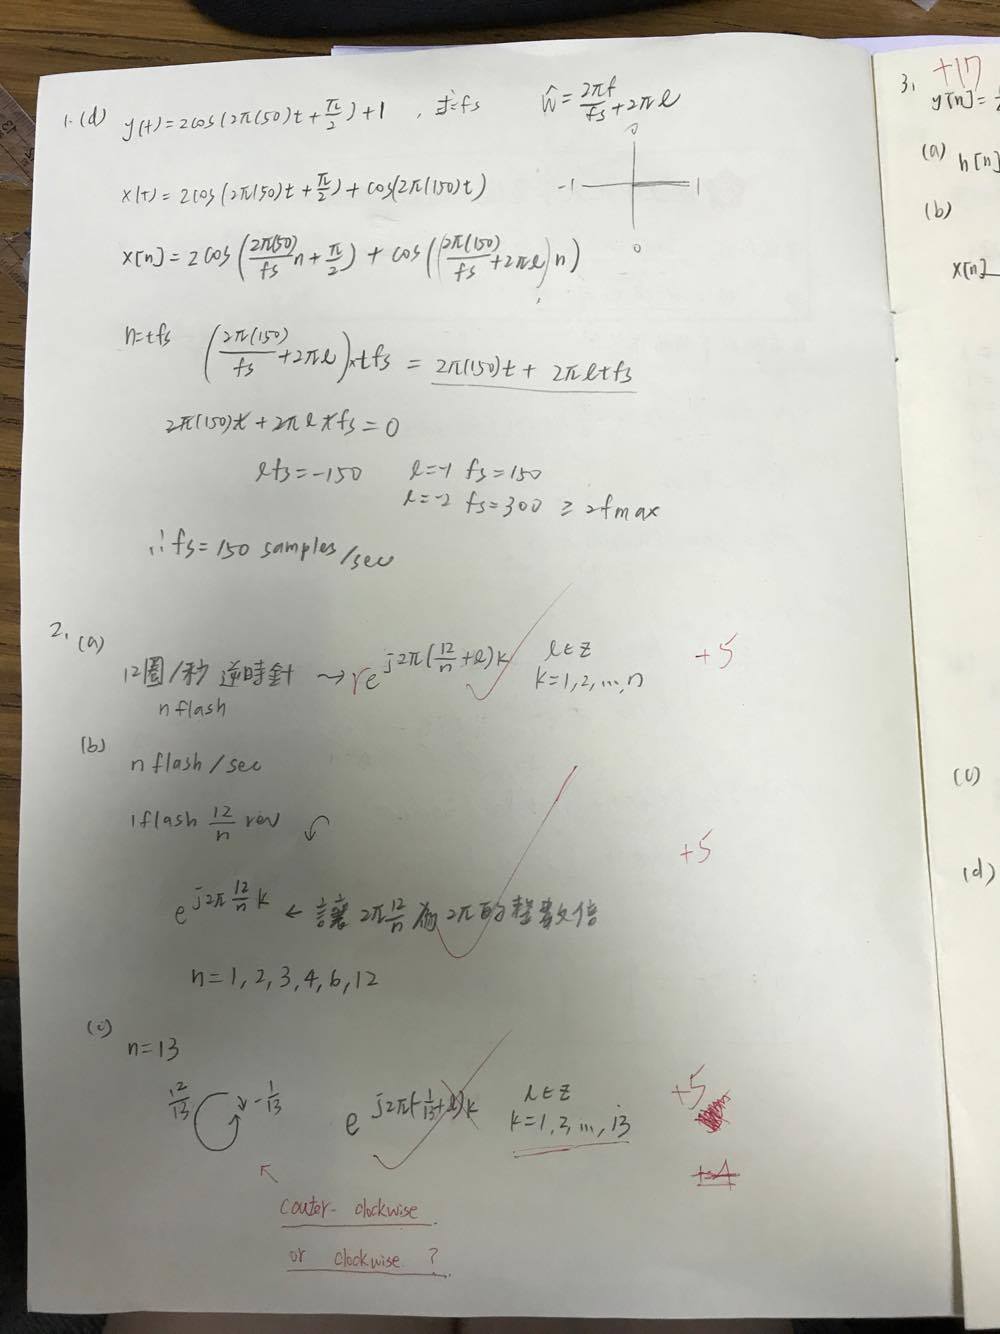 1.(d) y(t)=2cos(2π(50)t+π/2)+1 , 求fs ŵ=2πf/fs+2πl
0
-1 1
0
x(t)=2cos(2π(50)t+π/2)+cos(2π(150)t)
x[n]=2cos(2π(50)/fs n+π/2)+cos((2π(150)/fs+2πl)n)
n=tfs (2π(150)/fs+2πl)×tfs = 2π(150)t+2πltfs
2π(150)t+2πltfs=0
lfs=-150 l=-1 fs=150
l=-2 fs=300 ≥2fmax
∴fs=150 samples/sec
2.
(a)
12圈/秒 逆時針 → re^{j2π(12/n+l)k} l∈Z +5
n flash k=1,2,...,n
(b)
n flash/sec
1flash 12/n rev
+5
e^{j2π12/n k} ← 讓2π12/n為2π的整數倍
n=1,2,3,4,6,12
(c)
n=13
12/13 -1/13 e^{j2π(-1/13+l)k} l∈Z +5
k=1,2,...,13
+4
couter-clockwise
or clockwise ?
+17
3.
y[n]=
(a) h[n]
(b)
x[n]
(c)
(d)